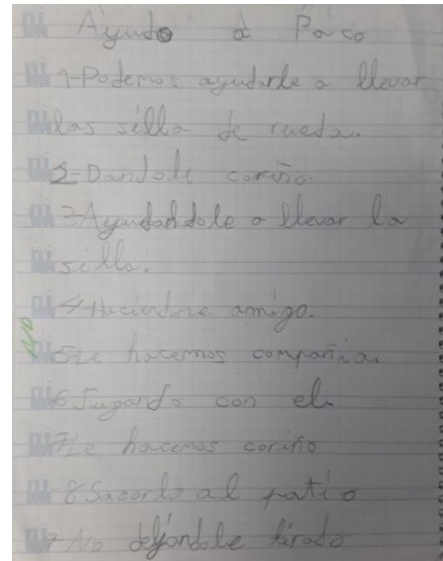 Ayudo a Paco
1-Podemos ayudarle a llevar
las silla de rueda.
2-Dandole coriño.
3-Ayudandole a llevar la
silla.
4-Haciendone amigo.
5Le hacemos compañia.
6Jugando con el.
7Le hacemos coriño
8Sacorlo al patio
9 No dejandole tirado